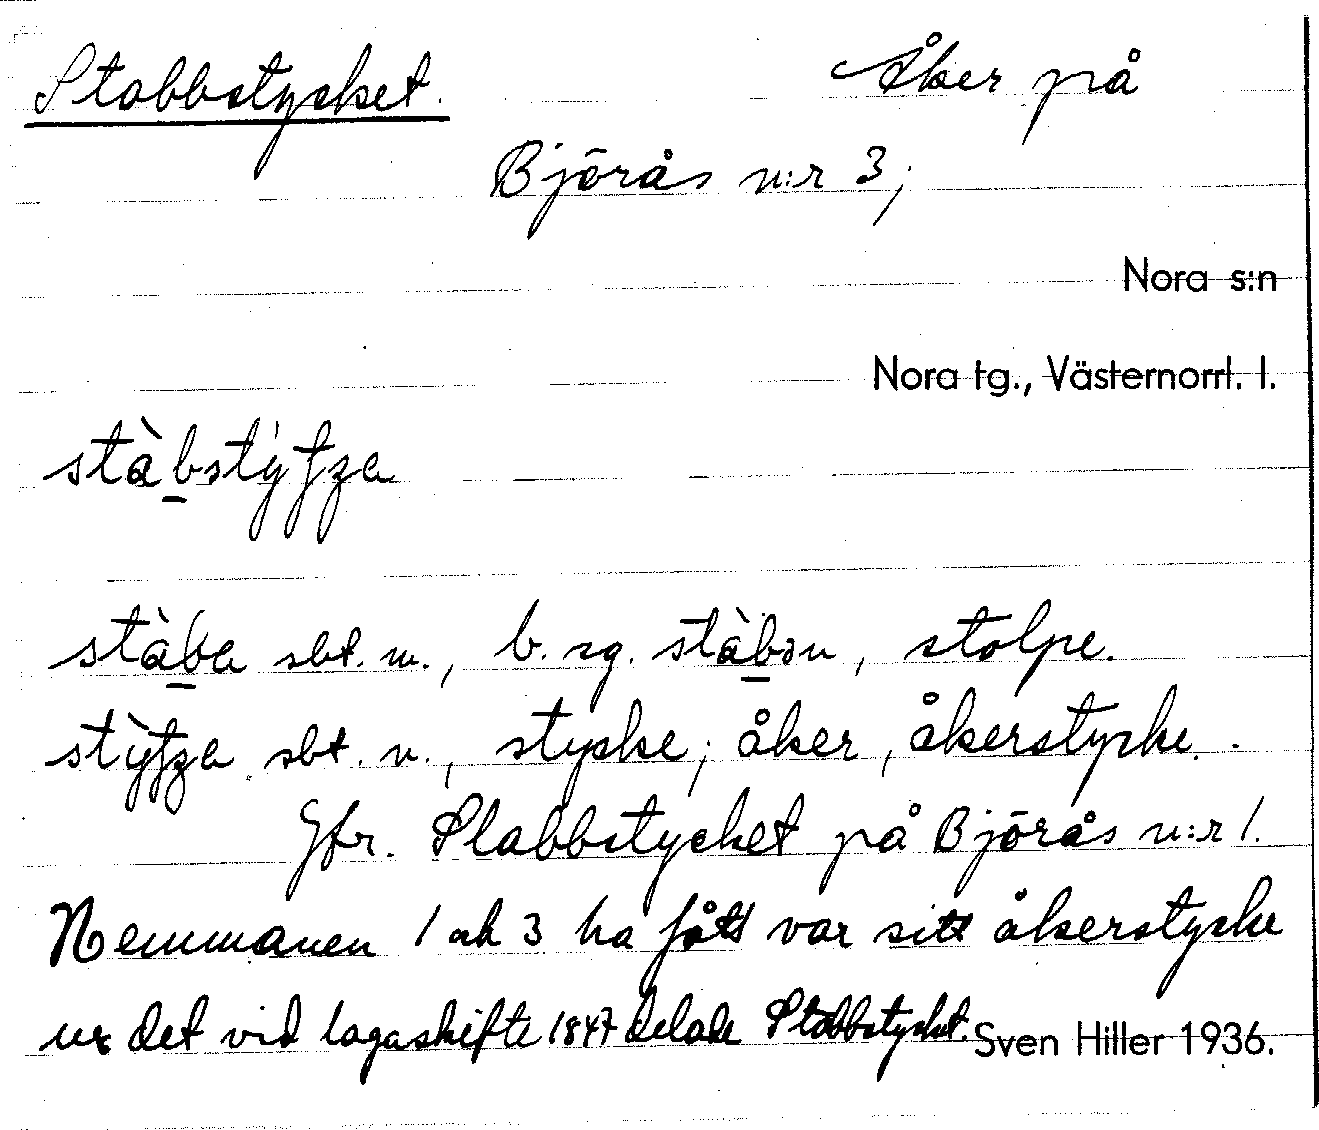 Stabbstycket. Åker på
Björås n:r 3;
Nora s:n
Nora tg., Västernorrl. l.
stàbstýtza
stàba sbt. m., b. sg. stàbən, stolpe.
stỳtza sbt. n., stycke; åker, åkerstycke.
Jfr. Stabbstycket på Björås n:r 1.
Hemmanen 1 ock 3 ha fått var sitt åkerstycke
ur det vid lagaskifte 1847 delade Stabbstycket.
Sven Hiller 1936.